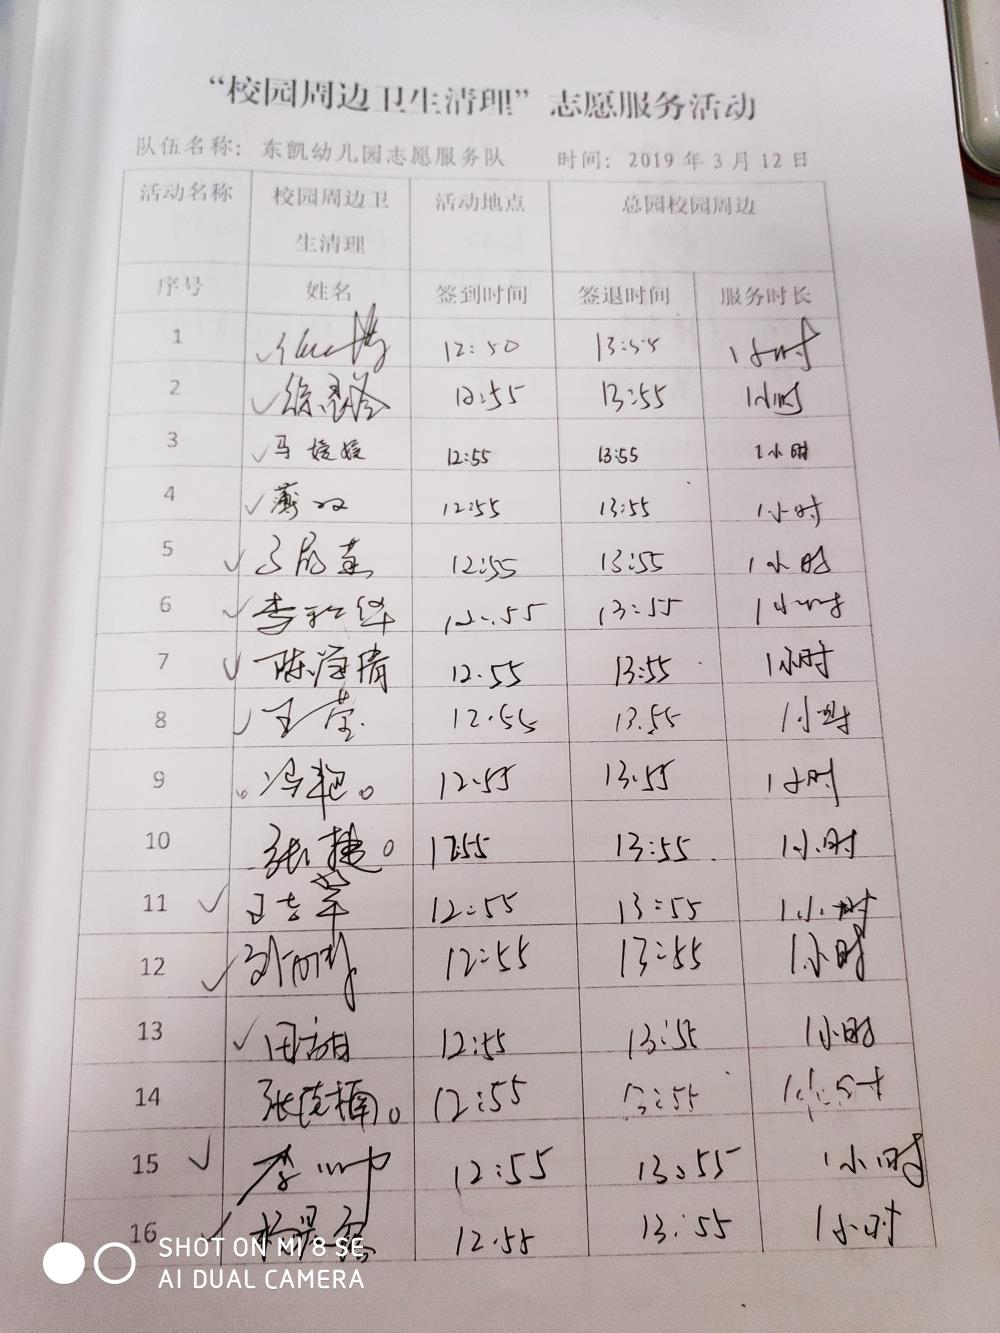 “校园周边卫生清理”志愿服务活动
队伍名称：东凯幼儿园志愿服务队 时间：2019年3月12日
活动名称 校园周边卫 活动地点 总园校园周边
生清理
序号 姓名 签到时间 签退时间 服务时长
1 12:50 13:55 1小时
2 徐 12:55 13:55 1小时
3 马媛媛 12:55 13:55 1小时
4 12:55 13:55 1小时
5 12:55 13:55 1小时
6 李 12:55 13:55 1小时
7 陈 倩 12.55 13:55 1小时
8 王莹 12.55 13.55 1小时
9 冯艳 12:55 13:55 1小时
10 张捷 1255 13:55 1小时
11 王 12:55 13:55 1小时
12 12:55 13:55 1小时
13 田甜 12:55 13:55 1小时
14 张 楠 12:55 13:55 1小时
15 李帅 12:55 13:55 1小时
16 杨 12.55 13:55 1小时
SHOT ON MI 8 SE
AI DUAL CAMERA